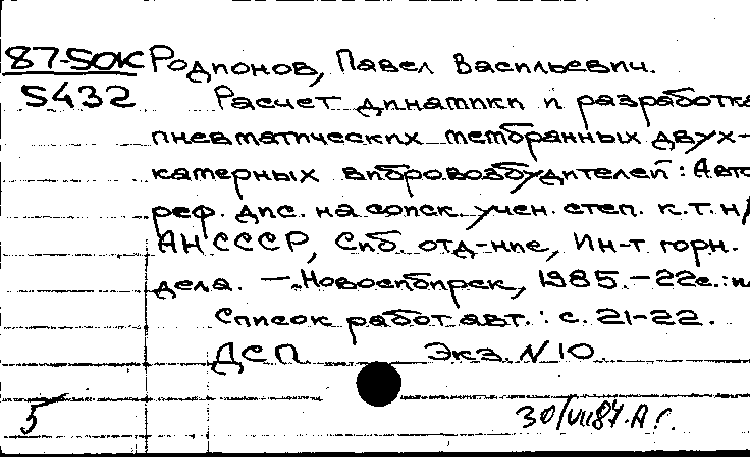 87-50К Родионов, Павел Васильевич.
5432 Расчет динамики и разработка
пневматических мембранных двух-
камерных вибровозбудителей: Авто
реф. дис. на соиск. учен. степ. к.т.н/
АН СССР, Сиб. отд-ние, Ин-т горн.
дела. — Новосибирск, 1985. — 22с.: и
Список работ авт.: с. 21-22.
ДСП Экз. N 10
5 30/VII87. А.Г.